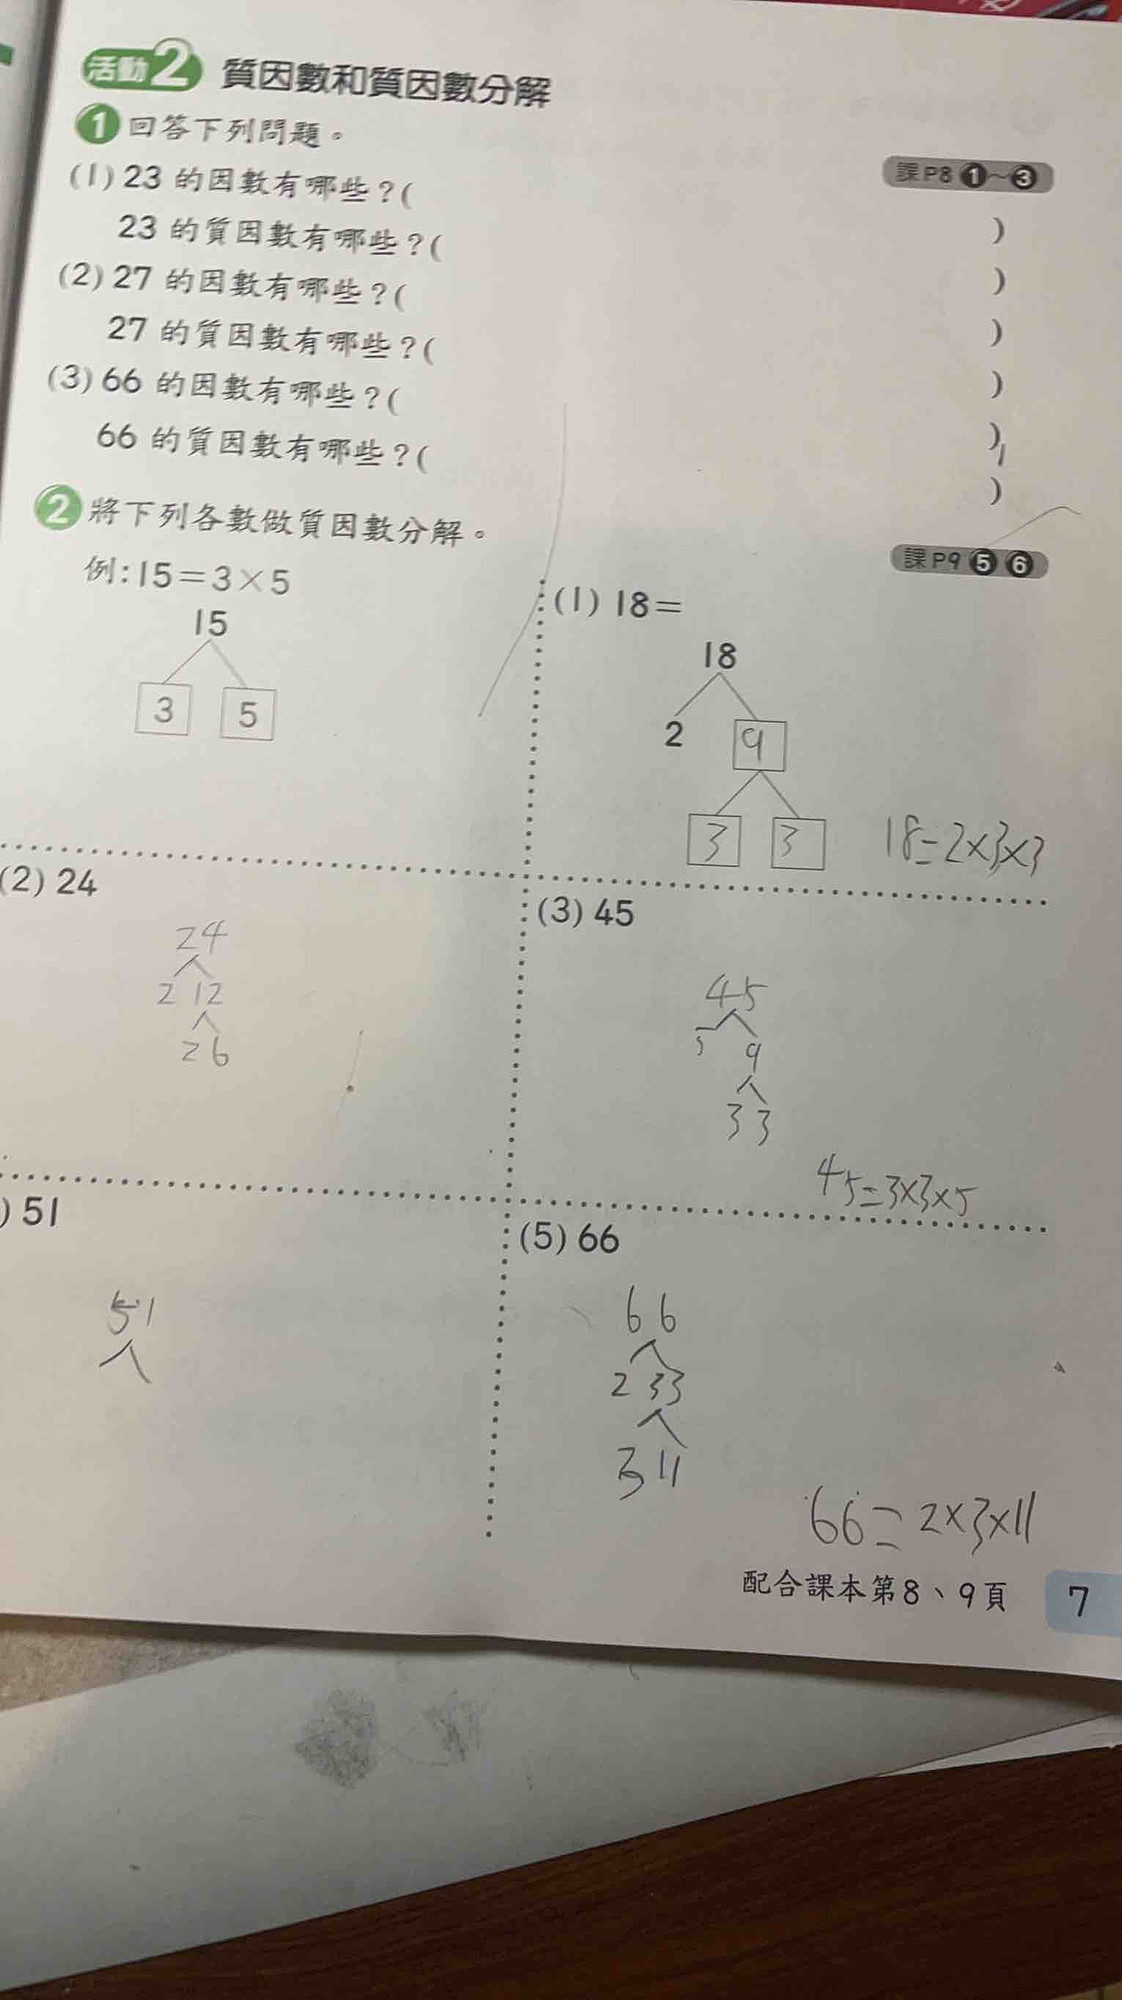 活動2 質因數和質因數分解
1 回答下列問題。
課P8 1~3
(1) 23 的因數有哪些？( )
23 的質因數有哪些？( )
(2) 27 的因數有哪些？( )
27 的質因數有哪些？( )
(3) 66 的因數有哪些？( )
66 的質因數有哪些？( )
2 將下列各數做質因數分解。
課P9 5 6
例：15=3×5
15
3 5
(1) 18=
18
2 9
3 3
18=2×3×3
(2) 24
24
2 12
2 6
(3) 45
45
5 9
3 3
45=3×3×5
) 51
51
(5) 66
66
2 33
3 11
66=2×3×11
配合課本第8、9頁 7